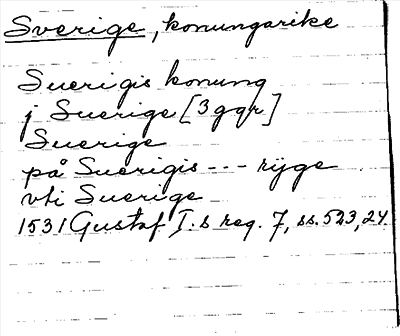 Sverige, konungarike
Suerigis konung
j Suerige [3 ggr]
Suerige
på Suerigis --- rijge
vti Suerige
1531 Gustaf I.s reg. 7, ss. 523, 24.